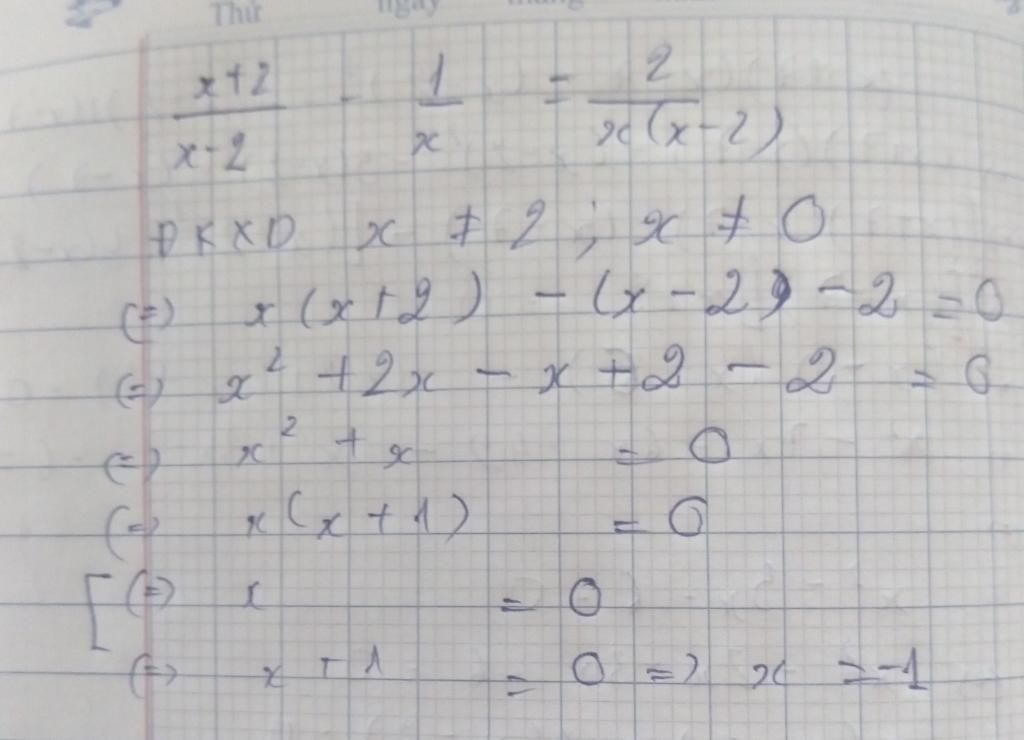 Thứ ngày tháng
x+2/x-2 - 1/x = 2/x(x-2)
ĐKXD x ≠ 2 ; x ≠ 0
(=) x(x+2) - (x-2) - 2 = 0
(=) x² + 2x - x + 2 - 2 = 0
(=) x² + x = 0
(=) x(x+1) = 0
[ (=) x = 0
(=) x + 1 = 0 => x = -1